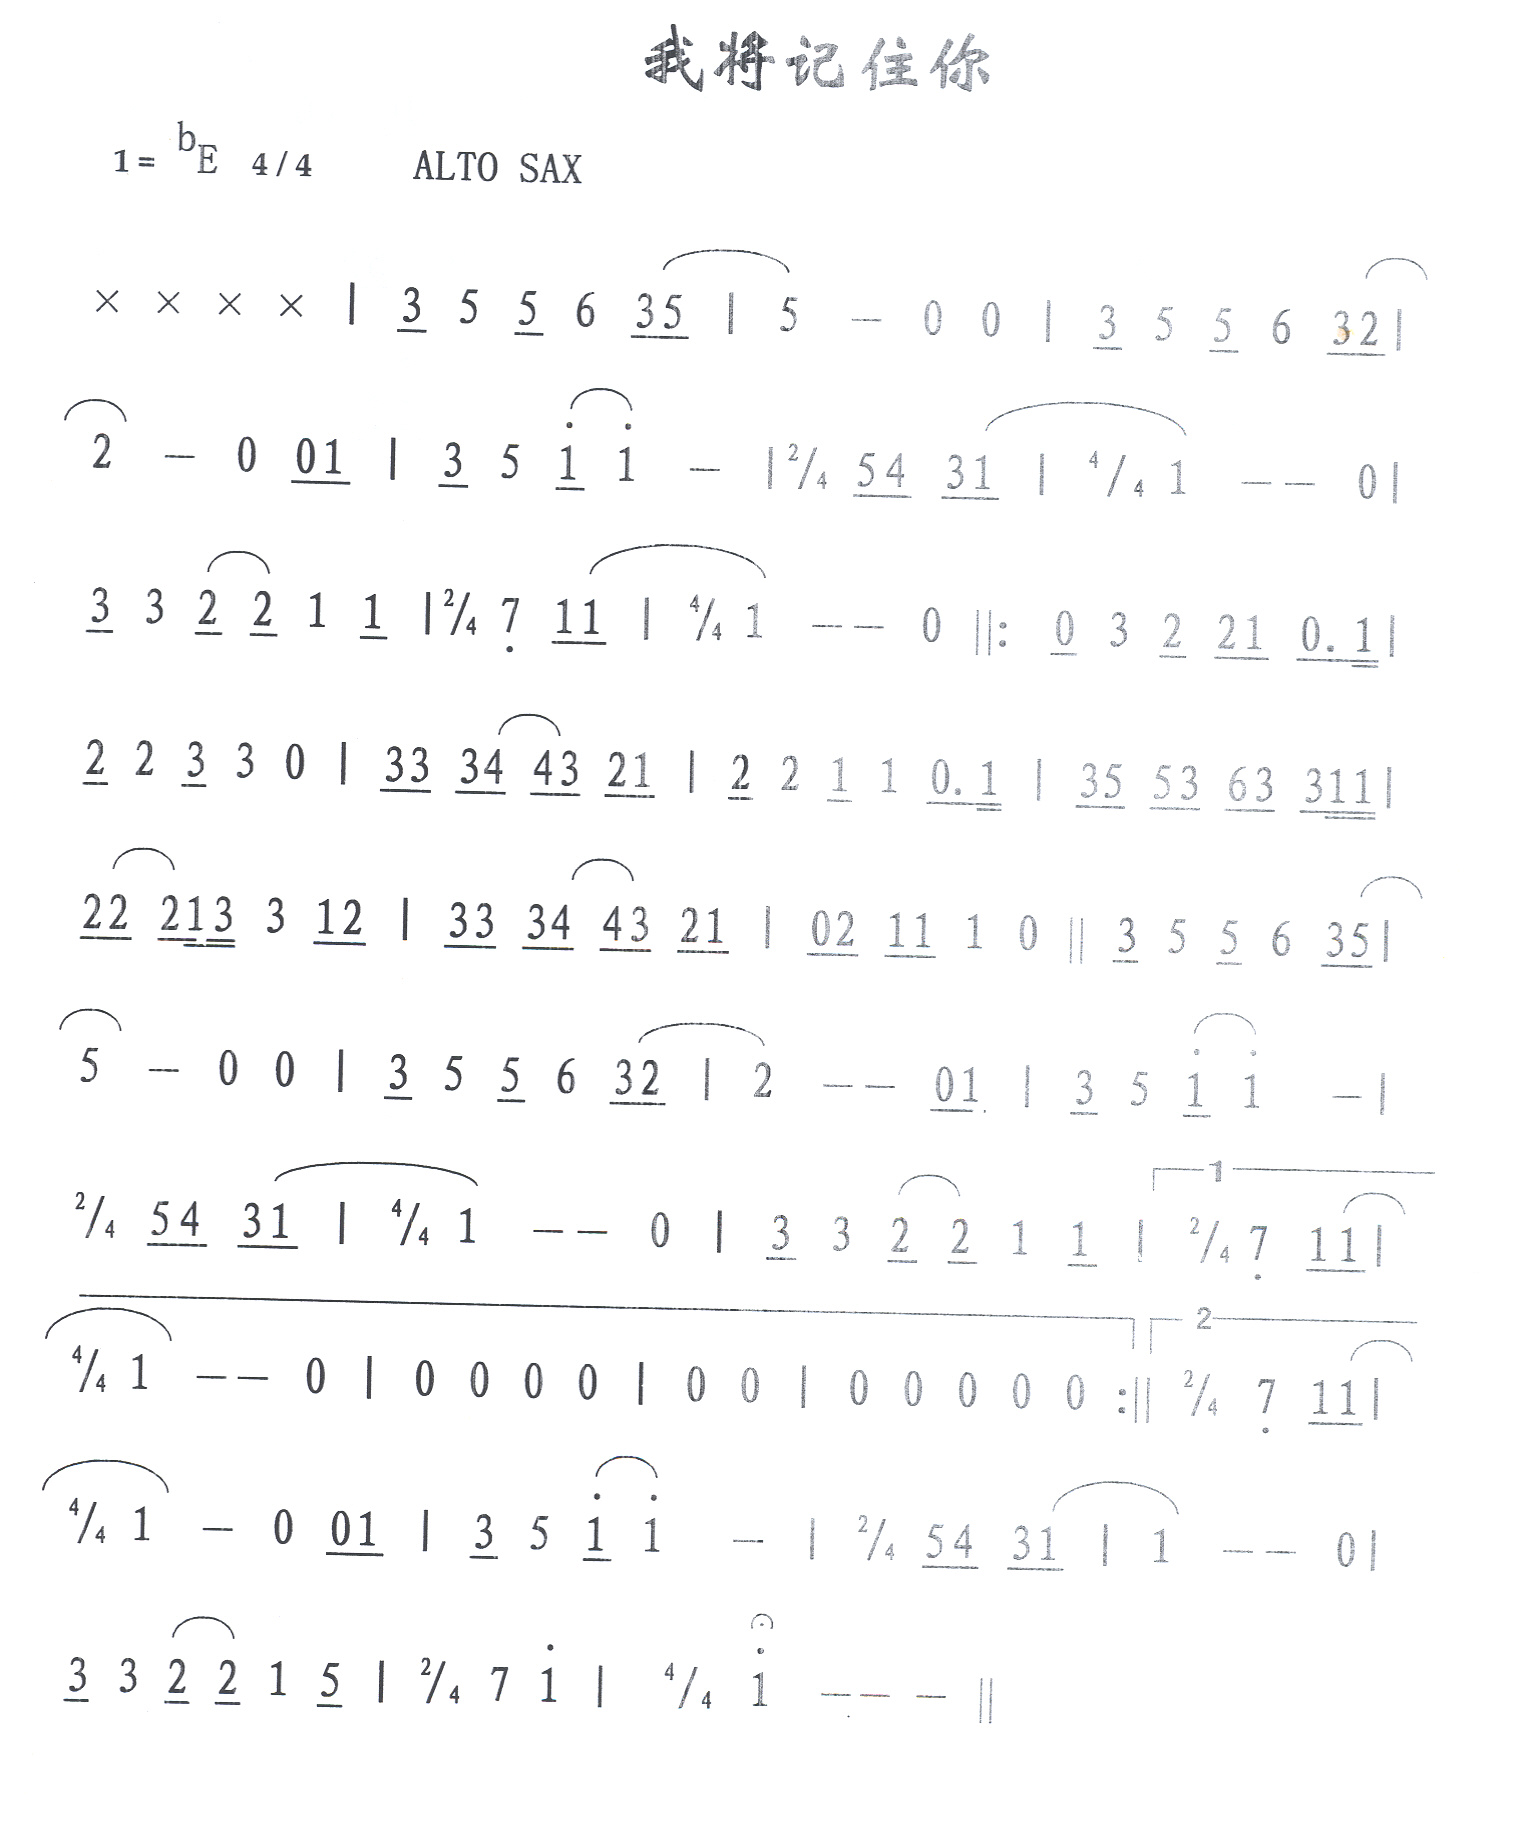 我将记住你
1= bE 4/4 ALTO SAX
× × × × | 3 5 5 6 35 | 5 — 0 0 | 3 5 5 6 32 |
2 — 0 01 | 3 5 i i — | 2/4 54 31 | 4/4 1 — — 0 |
3 3 2 2 1 1 | 2/4 7 11 | 4/4 1 — — 0 ||: 0 3 2 21 0.1 |
2 2 3 3 0 | 33 34 43 21 | 2 2 1 1 0.1 | 35 53 63 311 |
22 213 3 12 | 33 34 43 21 | 02 11 1 0 || 3 5 5 6 35 |
5 — 0 0 | 3 5 5 6 32 | 2 — — 01 | 3 5 i i — |
1
2/4 54 31 | 4/4 1 — — 0 | 3 3 2 2 1 1 | 2/4 7 11 |
2
4/4 1 — — 0 | 0 0 0 0 | 0 0 | 0 0 0 0 0 :|| 2/4 7 11 |
4/4 1 — 0 01 | 3 5 i i — | 2/4 54 31 | 1 — — 0 |
3 3 2 2 1 5 | 2/4 7 i | 4/4 i — — — ||